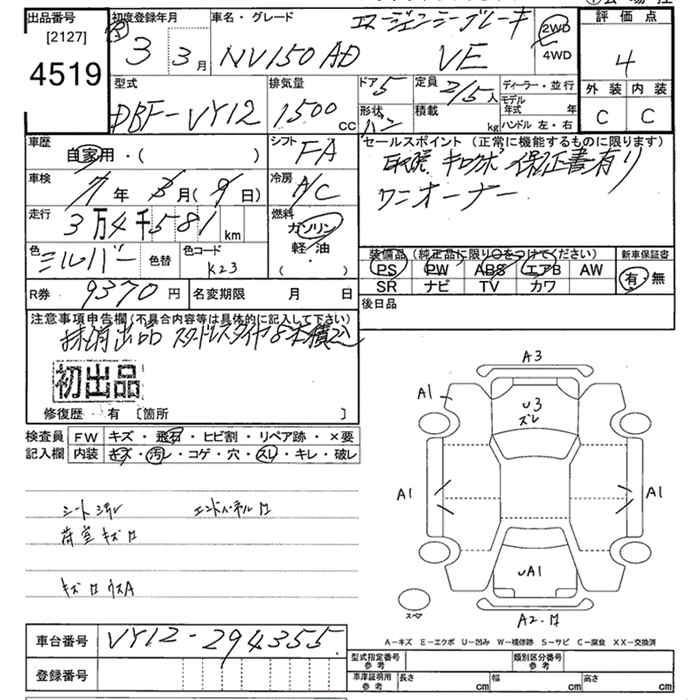 出品番号
[2127]
4519
初度登録年月
R 3 3月
車名・グレード
NV150AD
エマージェンシーブレーキ
VE
2WD
4WD
評価点
4
外装 内装
C C
型式
DBF-VY12
排気量
1500 CC
ドア 5
形状 バン
定員 2/5人
積載 kg
ディーラー・並行
モデル年式 年
ハンドル 左・右
車歴
自家用・( )
シフト
FA
車検
7年 3月(9日)
冷房
A/C
走行
3万4千581km
燃料
ガソリン
軽/油
( ・ )
色
シルバー 色替
色コード
K23
R券 9370円
名変期限 月 日
セールスポイント(正常に機能するものに限ります)
取説 キロクボ 保証書有り
ワンオーナー
装備品(純正品に限り○をつけてください)
PS PW ABS エアB AW
SR ナビ TV カワ
新車保証書
有・無
後日品
注意事項申告欄(不具合内容等は具体的に記入して下さい)
抹消出品 スタッドレスタイヤ 8本積込
初出品
修復歴・有〔箇所 〕
検査員記入欄
FW キズ・飛石・ヒビ割・リペア跡・×要
内装 キズ・汚レ・コゲ・穴・スレ・キレ・破レ
エンドパネルロ
荷室キズロ
キズロウスA
A3
U3
ズレ
A1
A1
A1
UA1
スペア
A2
A-キズ E-エクボ U-凹み W-補修跡 S-サビ C-腐食 XX-交換済
車台番号 VY12-294355
登録番号
型式指定番号 参考
類別区分番号 参考
車庫証明用 参考
長さ cm 幅 cm 高さ cm